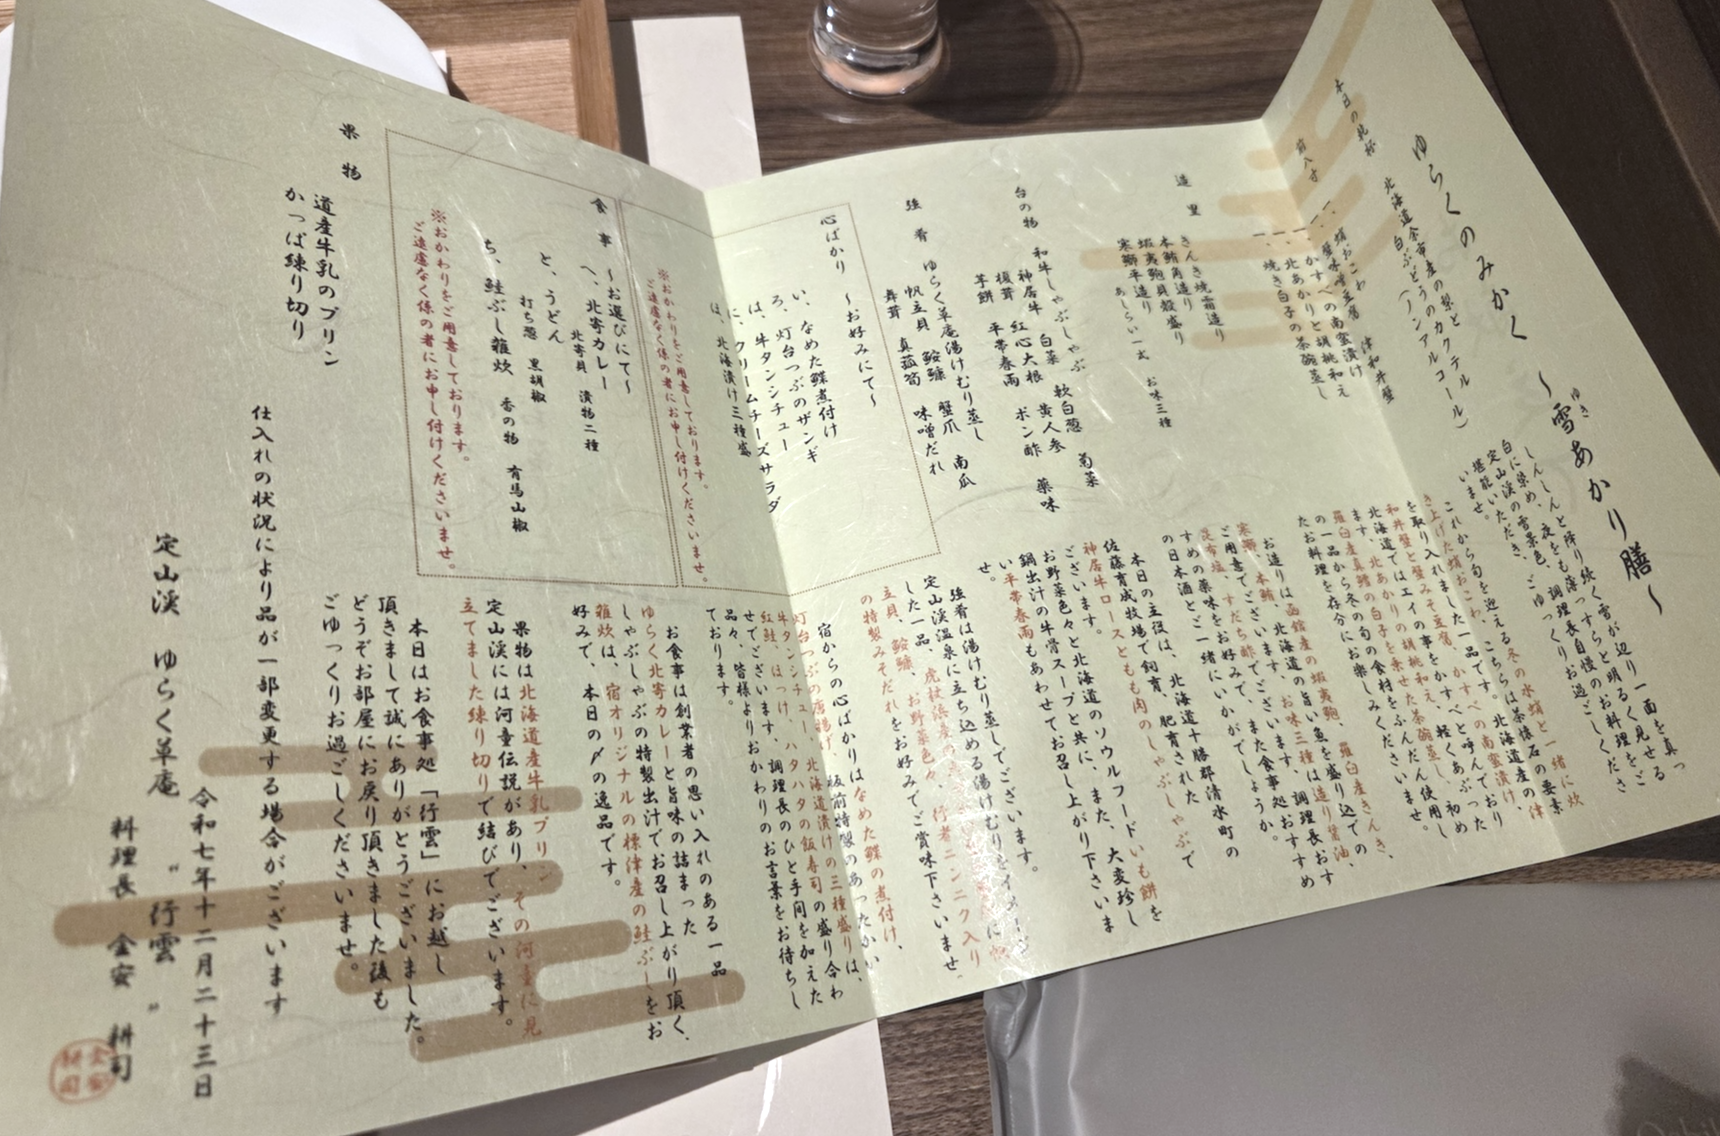 ゆらくのみかく ～雪あかり膳～
ゆき
しんしんと降り続く雪が辺り一面を真っ
白に染め、夜をも薄っすらと明るく見せる
定山渓の雪景色。調理長自慢のお料理をご
堪能いただき、ごゆっくりお過ごしくださ
いませ。
本日の乾杯 北海道余市産の梨と
白ぶどうのカクテル
（ノンアルコール）
前八寸
一、蛸おこわ
一、蟹味噌豆腐 津和井蟹
一、かすべの南蛮漬け
一、北あかりと胡桃和え
一、焼き白子の茶碗蒸し
これから旬を迎える冬の水蛸と一緒に炊
き上げた蛸おこわ。こちらは茶懐石の要素
を取り入れました一品です。北海道産の津
和井蟹と蟹みそ豆腐、かすべの南蛮漬け、
北海道ではエイの事をかすべと呼んでおり
ます。北あかりの胡桃和え、軽くあぶった
羅臼産真鱈の白子を乗せた茶碗蒸し。初め
の一品から冬の旬の食材をふんだん使用し
たお料理を存分にお楽しみくださいませ。
造里
きんき焼霜造り
本鮪角造り
蝦夷鮑貝殻盛り
寒鰤平造り
あしらい一式 お味三種
お造りは函館産の蝦夷鮑、羅臼産きんき、
寒鰤、本鮪、北海道の旨い魚を盛り込ての
ご用意でございます。お味三種は造り醤油、
昆布塩、すだち酢でございます。調理長おす
すめの薬味をお好みで、また食事処おすすめ
の日本酒とご一緒にいかがでしょうか。
台の物 和牛しゃぶしゃぶ
神居牛 白菜 軟白葱 菊菜
榎茸 紅心大根 黄人参
芋餅 平帯春雨 ポン酢 薬味
本日の主役は、北海道十勝郡清水町の
佐藤育成牧場で飼育、肥育された
神居牛ロースともも肉のしゃぶしゃぶで
ございます。北海道のソウルフードいも餅を
お野菜色々と共に、また、大変珍し
い平帯春雨もあわせてお召し上がり下さいま
せ。
強肴 ゆらく草庵湯けむり蒸し
帆立貝 鮟鱇 蟹爪 南瓜
舞茸 真菰筍 味噌だれ
強肴は湯けむり蒸しでございます。
定山渓温泉に立ち込める湯けむりをイメージ
した一品、
の特製みそだれをお好みでご賞味下さいませ。
心ばかり ～お好みにて～
い、なめた鰈煮付け
ろ、灯台つぶのザンギ
は、牛タンシチュー
に、クリームチーズサラダ
ほ、北海漬け三種盛
※おかわりをご用意しております。
ご遠慮なく係の者にお申し付けくださいませ。
宿からの心ばかりはなめた鰈の煮付け、
灯台つぶの唐揚げ、板前特製のあったかい
牛タンシチュー、北海道漬けの三種盛りは、
紅鮭、ほっけ、ハタハタの飯寿司の盛り合わ
せでございます。調理長のひと手間を加えた
品々、皆様よりおかわりのお言葉をお待ちし
ております。
食事 ～お選びにて～
へ、北寄カレー
北寄貝 漬物二種
と、うどん
打ち葱 黒胡椒
ち、鮭ぶし雑炊
香の物 有馬山椒
※おかわりをご用意しております。
ご遠慮なく係の者にお申し付けくださいませ。
お食事は創業者の思い入れのある一品
ゆらく北寄カレーと旨味の詰まった
しゃぶしゃぶの特製出汁でお召し上がり頂く、
雑炊は、宿オリジナルの標津産の鮭ぶしをお
好みで、本日の〆の逸品です。
果物
道産牛乳のプリン
かっぱ練り切り
果物は北海道産牛乳プリン
定山渓には河童伝説があり、その河童に見
立てました練り切りで結びでございます。
本日はお食事処「行雲」にお越し
頂きまして誠にありがとうございました。
どうぞお部屋にお戻り頂きました後も
ごゆっくりお過ごしくださいませ。
仕入れの状況により品が一部変更する場合がございます
令和七年十二月二十三日
定山渓 ゆらく草庵 〝行雲〟
料理長 金安 耕司